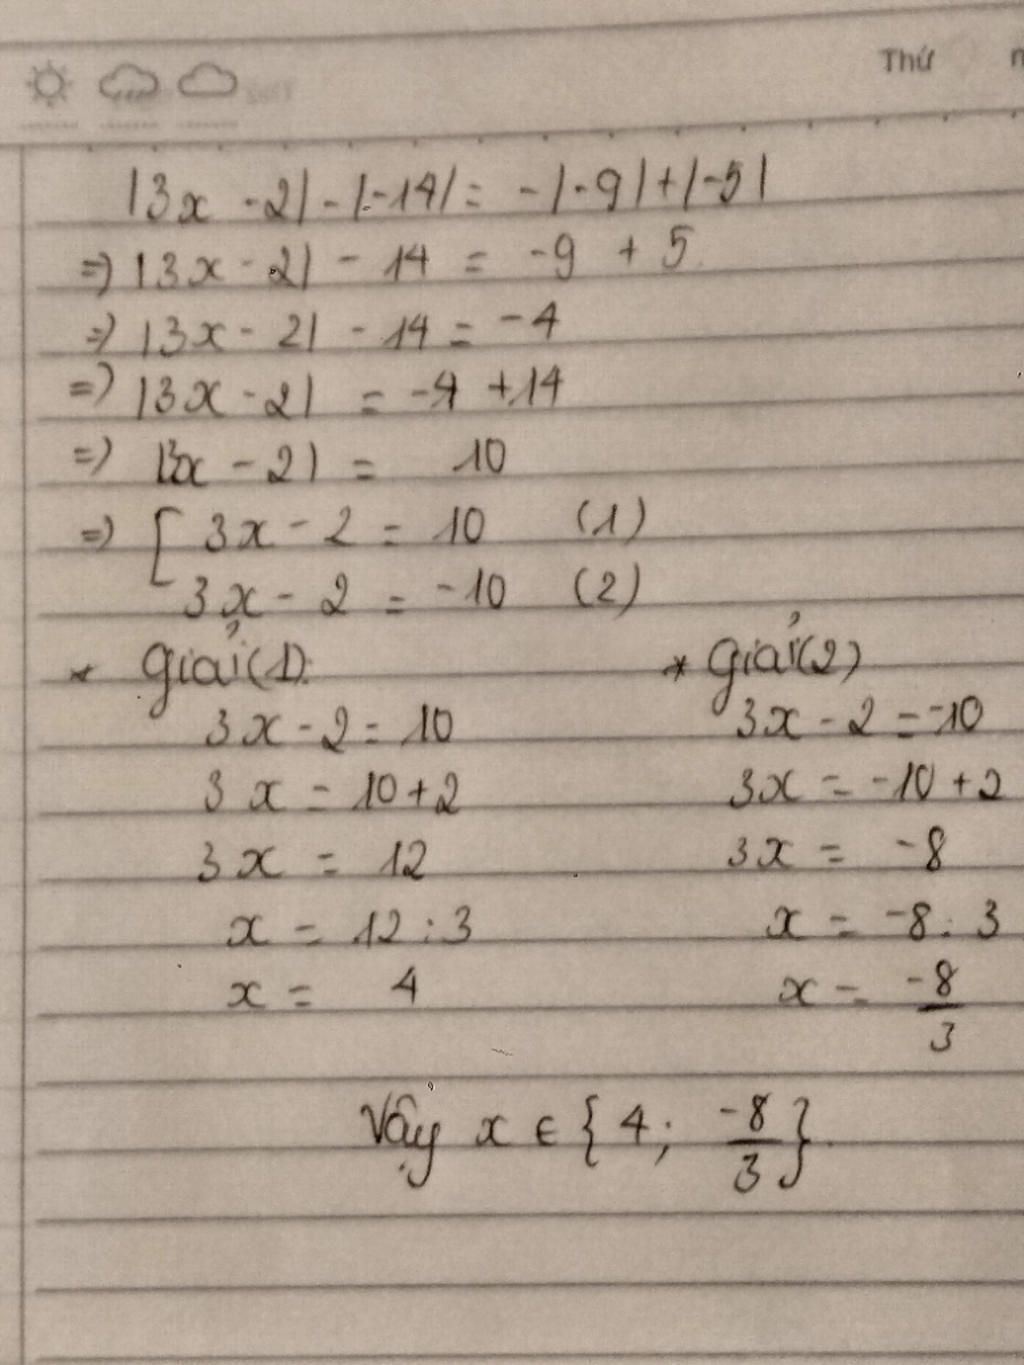 Thứ
|3x - 2| - |-14| = -|-9| + |-5|
=> |3x - 2| - 14 = -9 + 5
=> |3x - 2| - 14 = -4
=> |3x - 2| = -4 + 14
=> |3x - 2| = 10
=> [ 3x - 2 = 10 (1)
3x - 2 = -10 (2)
* Giải (1):
3x - 2 = 10
3x = 10 + 2
3x = 12
x = 12 : 3
x = 4
* Giải (2)
3x - 2 = -10
3x = -10 + 2
3x = -8
x = -8 : 3
x = -8/3
Vậy x ∈ {4; -8/3}.